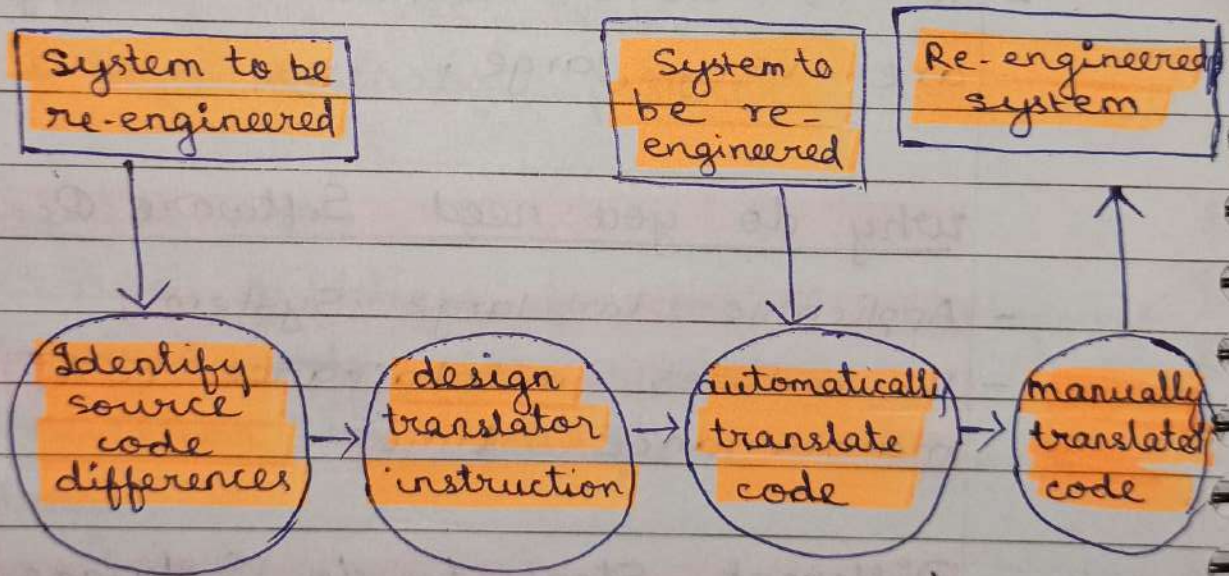 System to be
re-engineered
System to
be re-
engineered
Re-engineered
system
Identify
source
code
differences
design
translator
instruction
automatically
translate
code
manually
translated
code